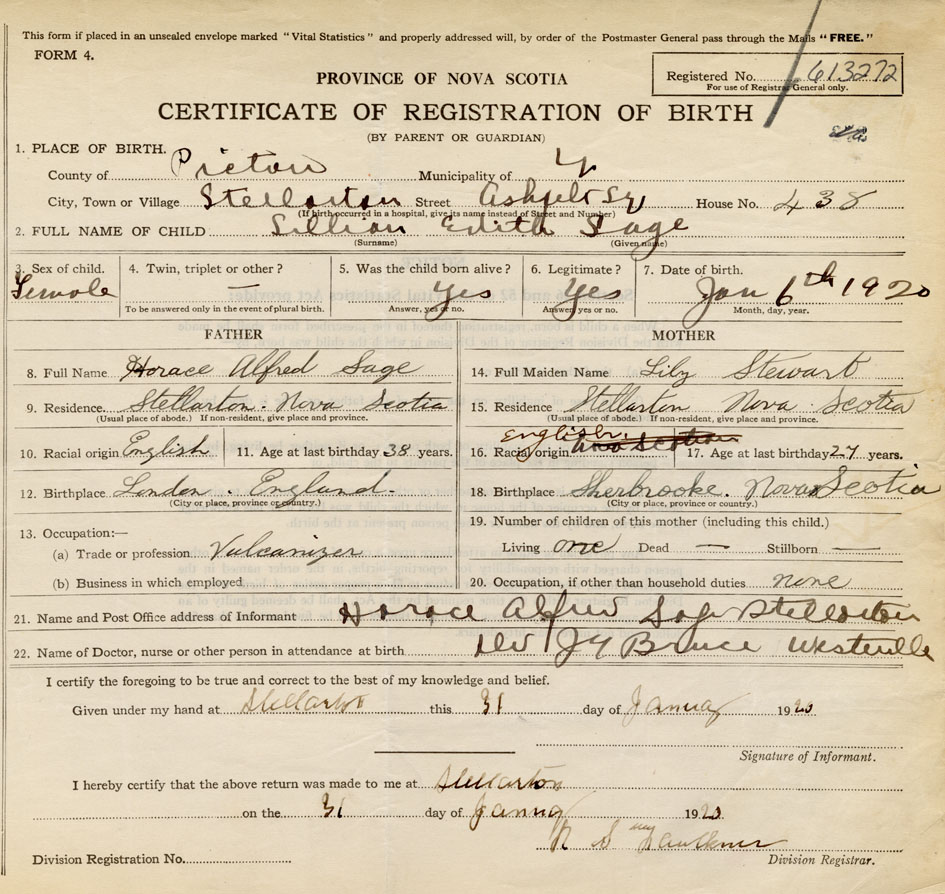 This form if placed in an unsealed envelope marked "Vital Statistics" and properly addressed will, by order of the Postmaster General pass through the Mails "FREE."
FORM 4.
PROVINCE OF NOVA SCOTIA
Registered No. 613272
For use of Registrar General only.
CERTIFICATE OF REGISTRATION OF BIRTH
(BY PARENT OR GUARDIAN)
1. PLACE OF BIRTH.
County of Pictou Municipality of
City, Town or Village Stellarton Street House No. 438
(If birth occurred in a hospital, give its name instead of Street and Number)
2. FULL NAME OF CHILD Lillian Edith Sage
(Surname) (Given name)
3. Sex of child. 4. Twin, triplet or other? 5. Was the child born alive? 6. Legitimate? 7. Date of birth.
Female — Yes Yes Jan 6th 1920
To be answered only in the event of plural birth. Answer, yes or no. Answer yes or no. Month, day, year.
FATHER
8. Full Name Horace Alfred Sage
9. Residence Stellarton. Nova Scotia
(Usual place of abode.) If non-resident, give place and province.
10. Racial origin English 11. Age at last birthday 38 years.
12. Birthplace London. England.
(City or place, province or country.)
13. Occupation:—
(a) Trade or profession Vulcanizer
(b) Business in which employed
MOTHER
14. Full Maiden Name Lily Stewart
15. Residence Stellarton Nova Scotia
(Usual place of abode.) If non-resident, give place and province.
English.
16. Racial origin 17. Age at last birthday 27 years.
18. Birthplace Sherbrooke. Nova Scotia
(City or place, province or country.)
19. Number of children of this mother (including this child.)
Living one Dead — Stillborn —
20. Occupation, if other than household duties none
21. Name and Post Office address of Informant Horace Alfred Sage Stellarton
22. Name of Doctor, nurse or other person in attendance at birth Bruce Westville
I certify the foregoing to be true and correct to the best of my knowledge and belief.
Given under my hand at Stellarton this 31 day of January 1920
Signature of Informant.
I hereby certify that the above return was made to me at Stellarton
on the 31 day of January 1920
Faulkner
Division Registration No. Division Registrar.